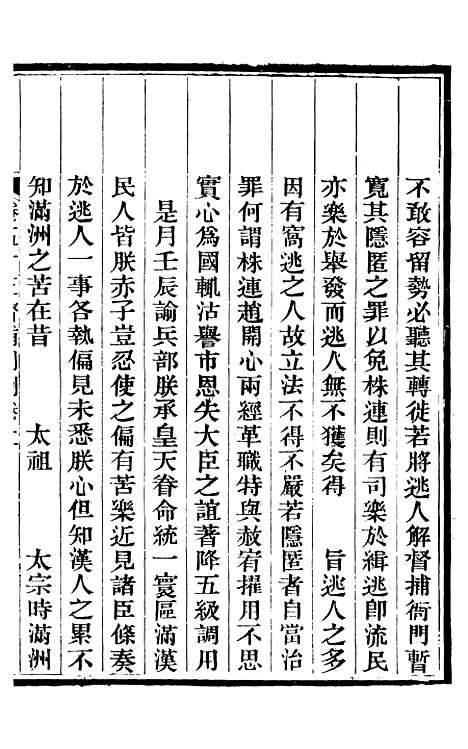 不敢容留勢必聽其轉徙若將逃人解督捕衙門暫
寬其隱匿之罪以免株連則有司樂於緝逃卽流民
亦樂於舉發而逃人無不獲矣得　　旨逃人之多
因有窩逃之人故立法不得不嚴若隱匿者自當治
罪何謂株連趙開心兩經革職特與赦宥擢用不思
實心爲國輒沽譽市恩失大臣之誼著降五級調用
是月壬辰諭兵部朕承皇天眷命統一寰區滿漢
民人皆朕赤子豈忍使之偏有苦樂近見諸臣條奏
於逃人一事各執偏見未悉朕心但知漢人之累不
知滿洲之苦在昔　　太祖　　太宗時滿洲